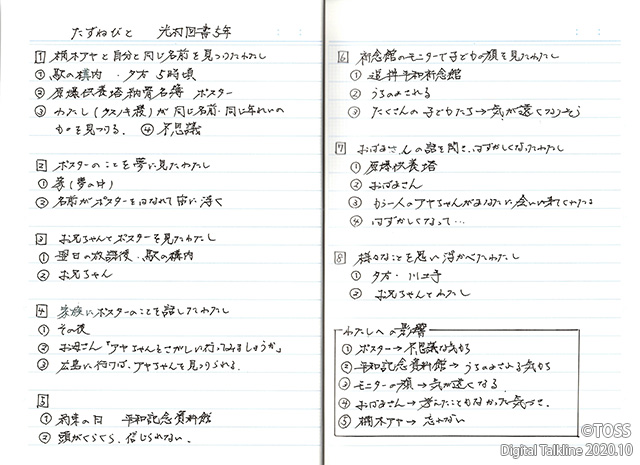 たずねびと 光村図書5年
1 楠木アヤと自分と同じ名前を見つけたわたし
① 駅の構内・夕方5時頃
② 原爆供養塔納骨名簿 ポスター
③ わたし(クスノキ綾)が同じ名前・同じ年れいの
ものを見つける。 ④ 不思議
2 ポスターのことを夢に見たわたし
① 家(夢の中)
② 名前がポスターをはなれて宙に浮く
3 お兄ちゃんとポスターを見たわたし
① 翌日の放課後・駅の構内
② お兄ちゃん
4 家族にポスターのことを話したわたし
① その後
② お母さん「アヤちゃんをさがしに行ってみましょうか」
③ 広島に行けば、アヤちゃんを見つけられる。
5
① 約束の日 平和記念資料館
② 頭がくらくら、信じられない。
6 祈念館のモニターで子どもの顔を見たわたし
① 追悼平和祈念館
② うちのめされる
③ たくさんの子どもたち→気が遠くなりそう
7 おばあさんの話を聞き、はずかしくなったわたし
① 原爆供養塔
② おばあさん
③ もう一人のアヤちゃんがあなたに会いに来てくれたよ
④ はずかしくなって…
8 様々なことを思い浮かべたわたし
① 夕方・川土手
② お兄ちゃんとわたし
わたしへの影響
① ポスター→不思議な気持ち
② 平和記念資料館→うちのめされる気持ち
③ モニターの顔→気が遠くなる。
④ おばあさん→考えたこともなかった気づき。
⑤ 楠木アヤ→忘れない
©TOSS
Digital Talkline 2020.10